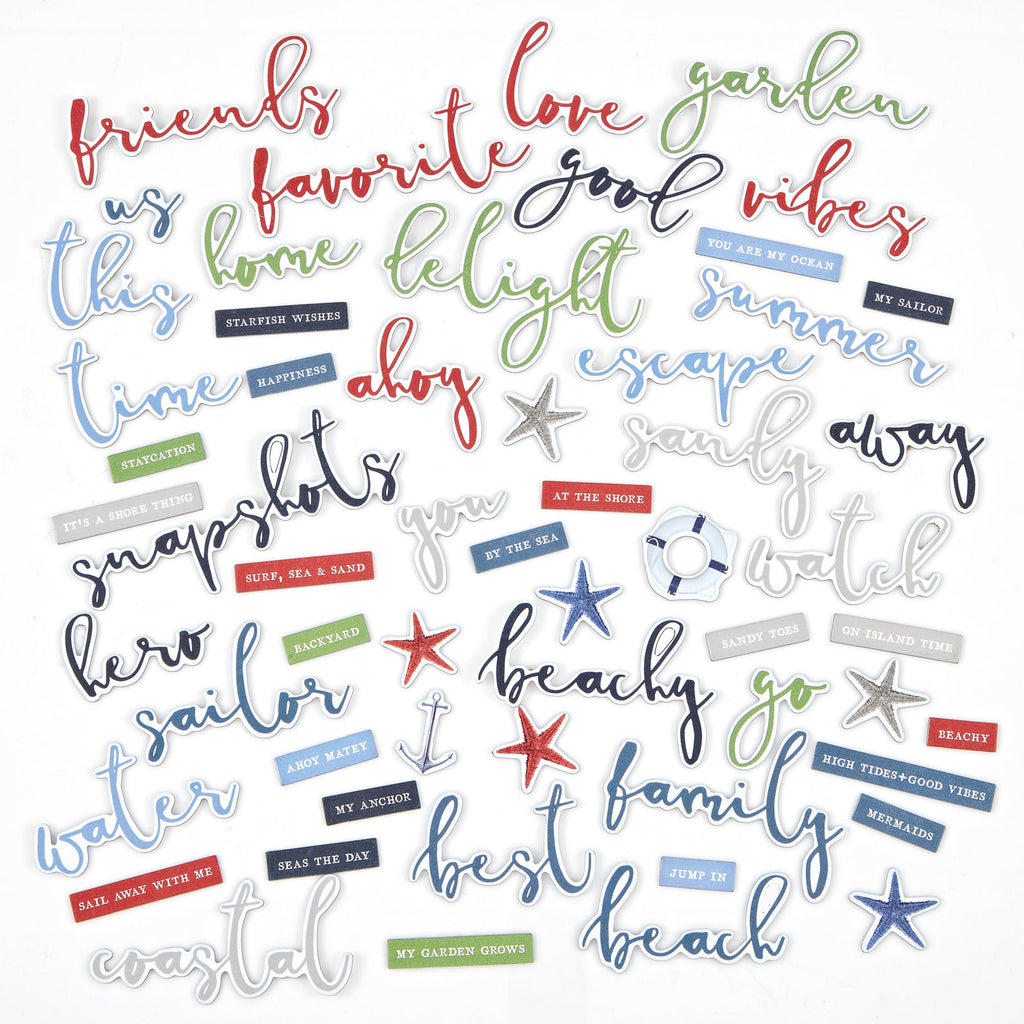 friends
love
garden
favorite
good
vibes
us
this
home
delight
YOU ARE MY OCEAN
MY SAILOR
STARFISH WISHES
summer
time
HAPPINESS
ahoy
escape
sandy
away
STAYCATION
IT'S A SHORE THING
snapshots
you
AT THE SHORE
BY THE SEA
watch
SURF, SEA & SAND
hero
BACKYARD
beachy
SANDY TOES
ON ISLAND TIME
sailor
go
BEACHY
AHOY MATEY
HIGH TIDES+GOOD VIBES
water
MY ANCHOR
family
MERMAIDS
best
SEAS THE DAY
JUMP IN
SAIL AWAY WITH ME
beach
coastal
MY GARDEN GROWS